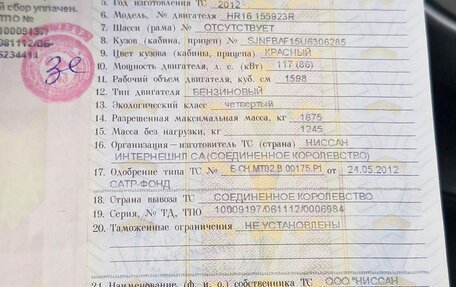 ый сбор уплачен.
ТПО №
10009197/
061112/ВБ-
6234411
зе
5. Год изготовления ТС 2012
6. Модель, № двигателя HR16 155923R
7. Шасси (рама) № ОТСУТСТВУЕТ
8. Кузов (кабина, прицеп) № SJNFBAF15U6306285
9. Цвет кузова (кабины, прицепа) КРАСНЫЙ
10. Мощность двигателя, л. с. (кВт) 117 (86)
11. Рабочий объем двигателя, куб. см 1598
12. Тип двигателя БЕНЗИНОВЫЙ
13. Экологический класс четвертый
14. Разрешенная максимальная масса, кг 1675
15. Масса без нагрузки, кг 1245
16. Организация—изготовитель ТС (страна) НИССАН
ИНТЕРНЕШНЛ СА (СОЕДИНЕННОЕ КОРОЛЕВСТВО)
17. Одобрение типа ТС № E-CH.MT02.B.00175.P1 от 24.05.2012
САТР-ФОНД
18. Страна вывоза ТС СОЕДИНЕННОЕ КОРОЛЕВСТВО
19. Серия, № ТД, ТПО 10009197/061112/0006984
20. Таможенные ограничения НЕ УСТАНОВЛЕНЫ
21. Наименование (ф. и. о.) собственника ТС ООО "НИССАН